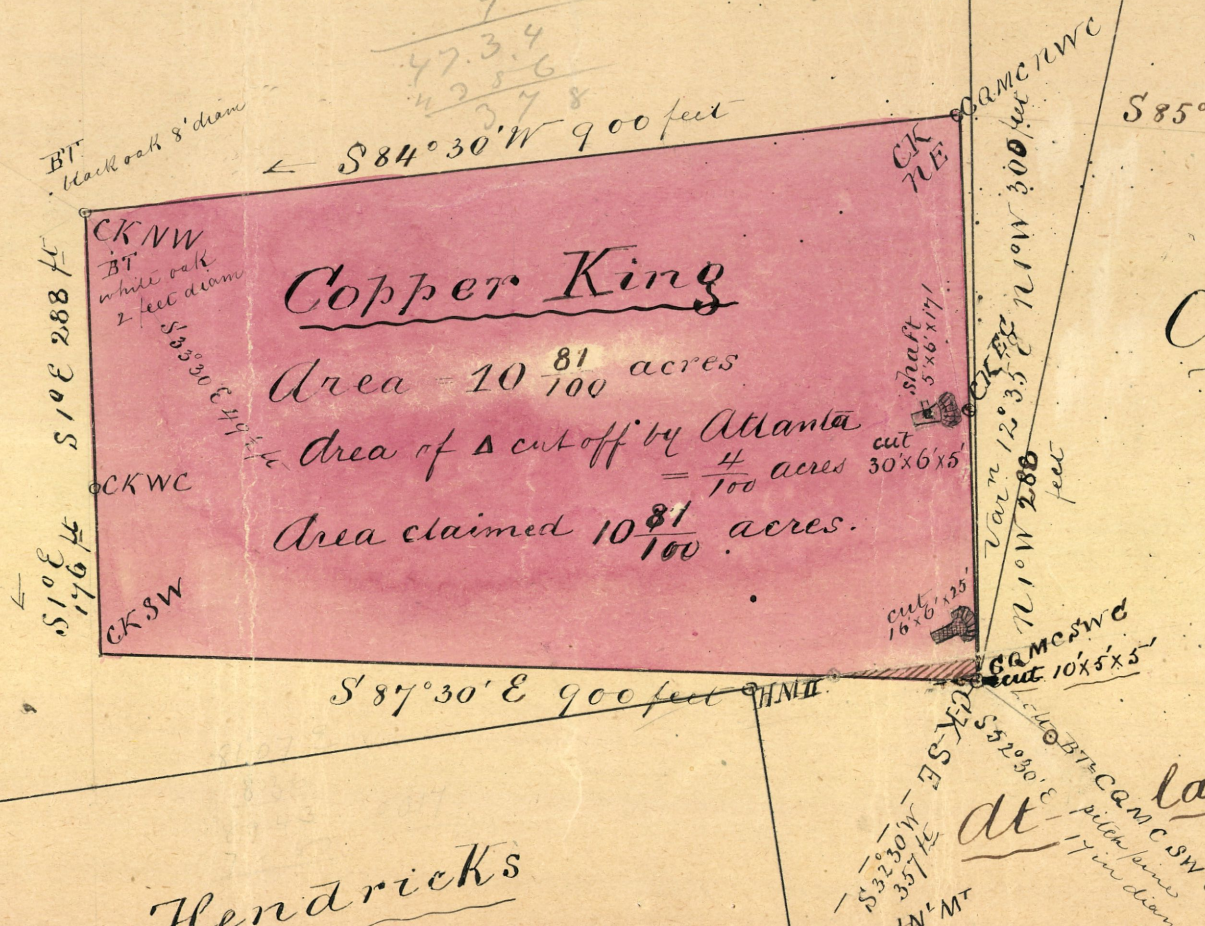 47.3.4
378
S 84° 30' W 900 feet
BT
black oak 8' diam
CQMC NWC
S 85°
CK
NE
CK NW
BT
white oak
2 feet diam
S 33° 30 E 49 ft
S 1° E 288 ft
Copper King
Area = 10 81/100 acres
Area of Δ cut off by Atlanta
= 4/100 acres
Area claimed 10 81/100 acres.
shaft
5'x6'x17'
cut
30'x6'x5'
CK EC
Var n 12° 35' E N 1° W 300 feet
N 1° W 288
feet
CK WC
S 1° E
176 ft
CK SW
cut
16'x6'x25'
CQMC SWC
cut 10'x5'x5'
S 87° 30' E 900 feet
HM II
CK SE
S 52° 30' E
BT CQMC SW
pitch pine
17 in diam
S 32° 30' W
357 ft
N' MT
At
la
Hendricks